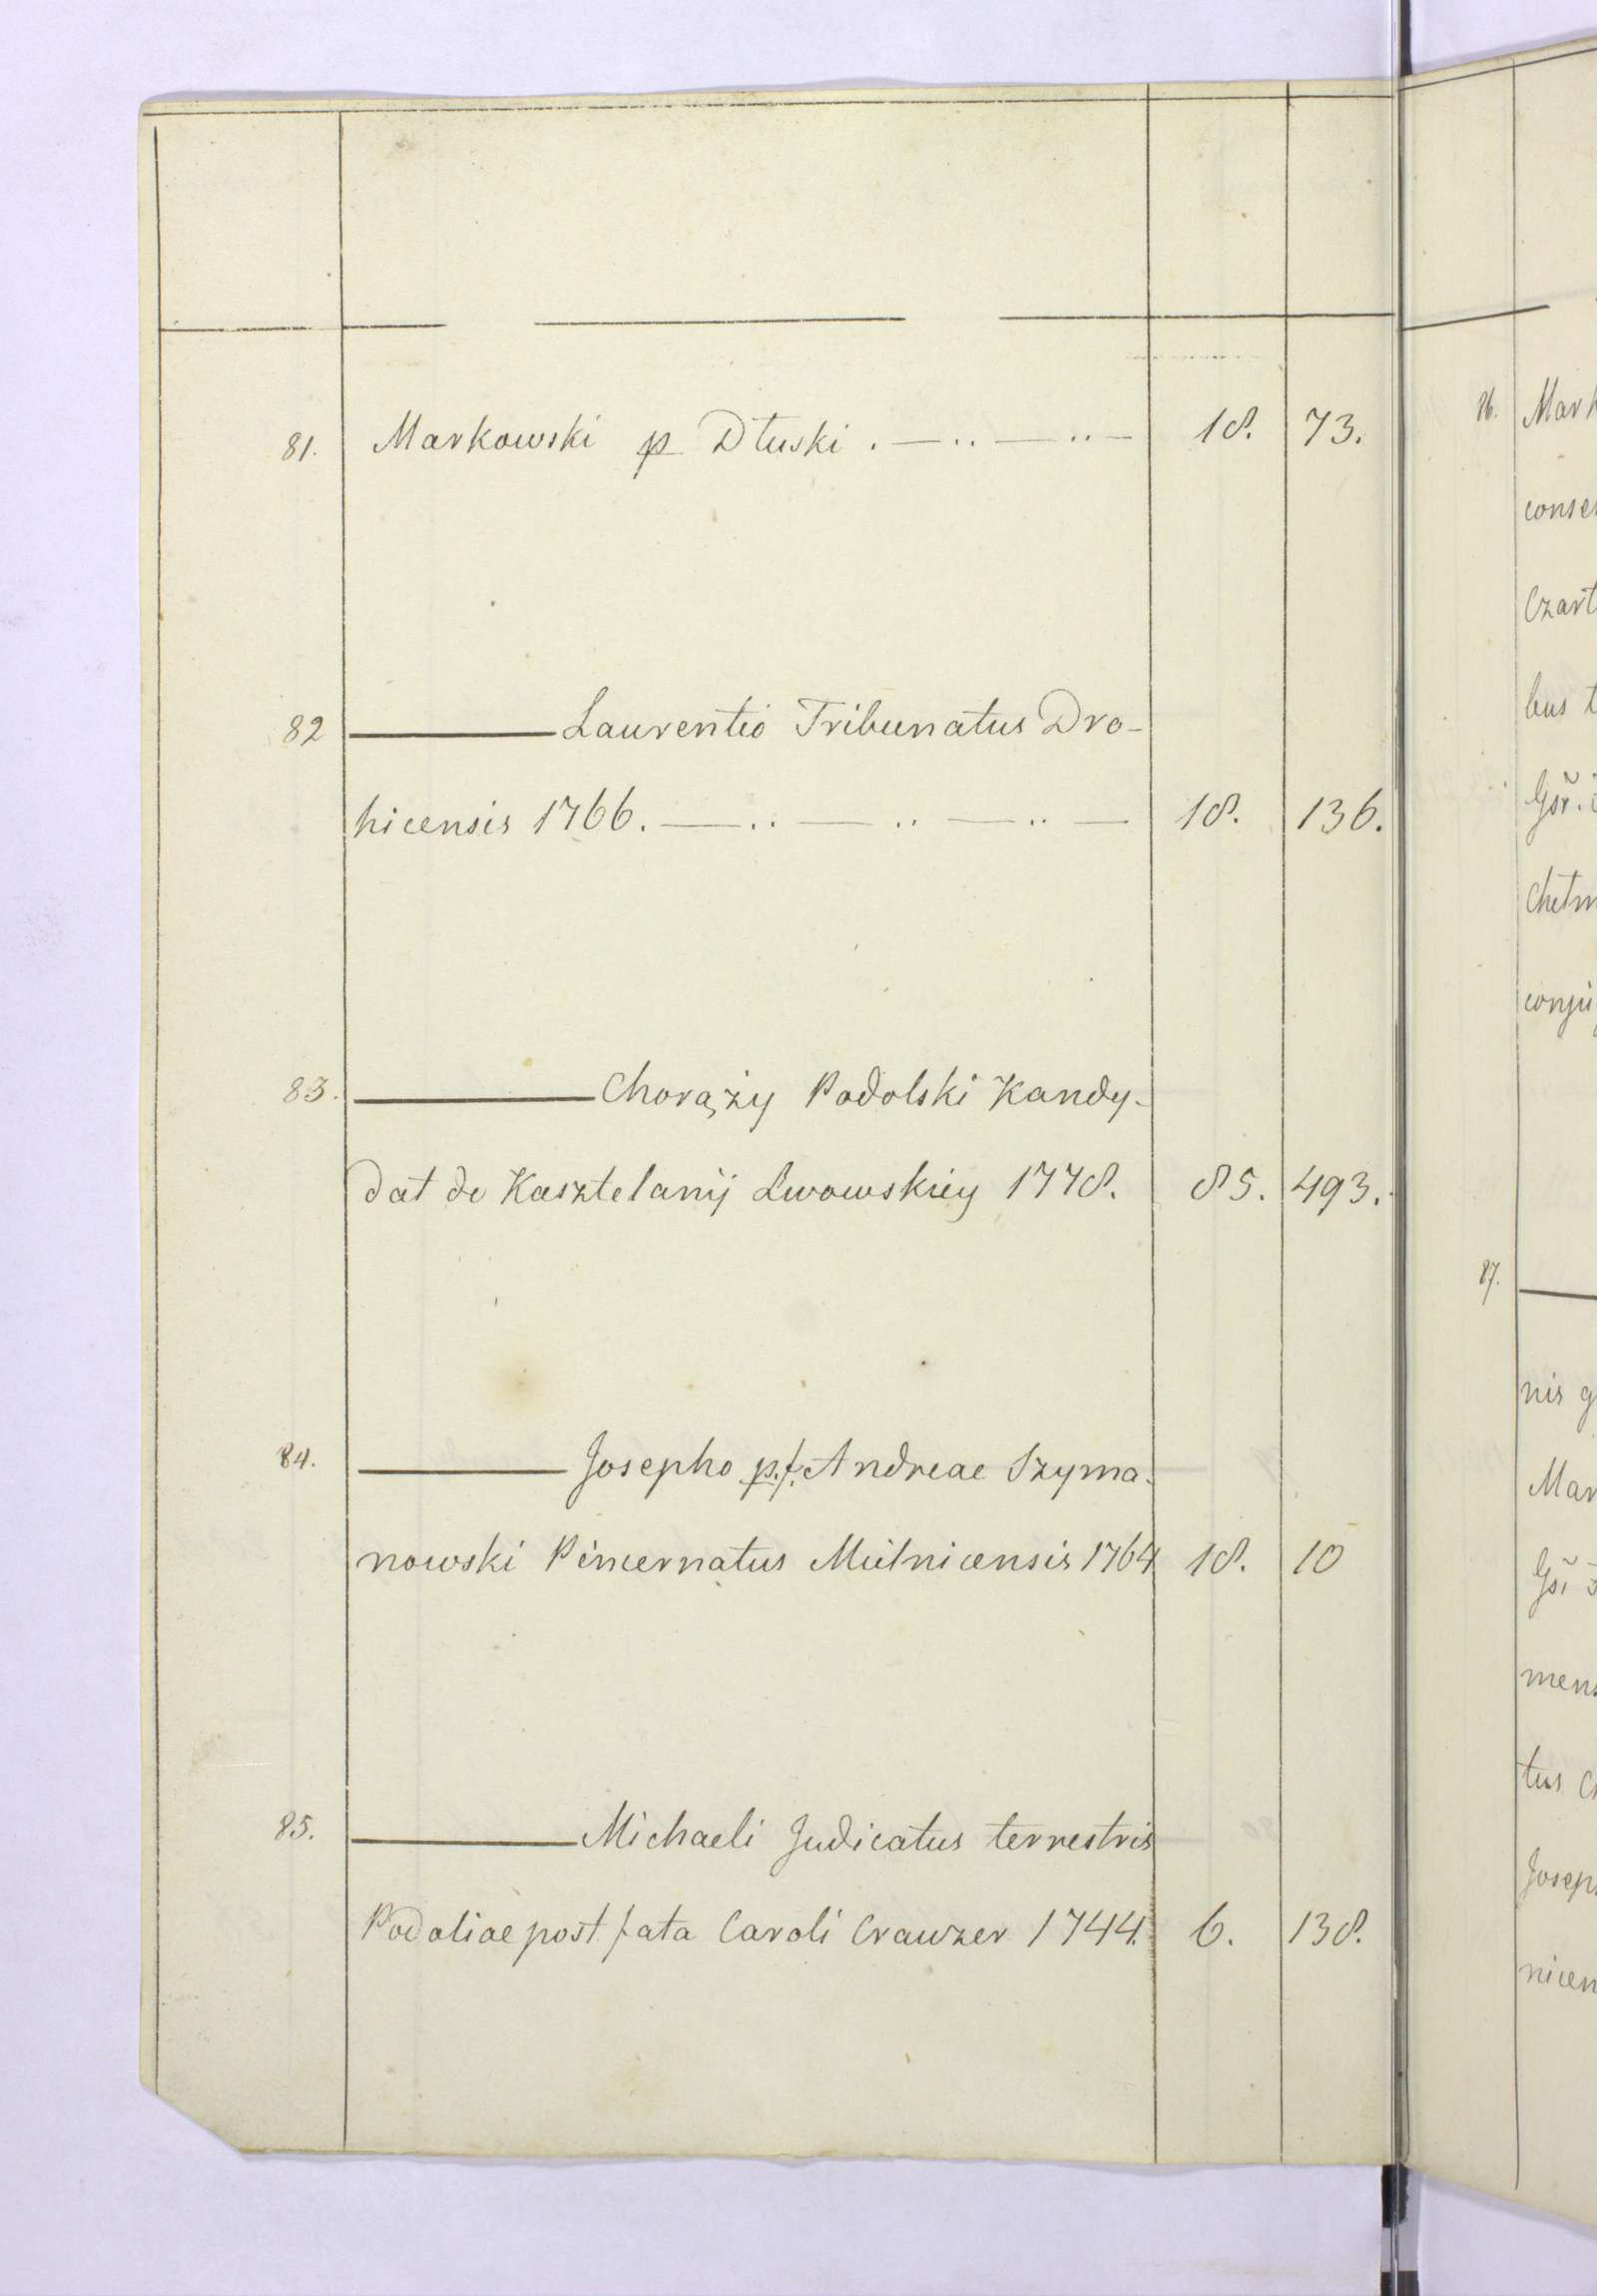 81. Markowski p Dłuski . — .. — .. — 18. 73.
82 ——— Laurentio Tribunatus Dro-
hicensis 1766. — .. — .. — .. — 18. 136.
83. ——— Chorąży Podolski Kandy-
dat do Kasztelanij Lwowskiey 1778. 85. 493.
84. ——— Josepho p.f. Andreae Szyma-
nowski Pincernatus Mielnicensis 1764 18. 10
85. ——— Michaeli Judicatus terrestris
Podoliae post fata Caroli Crawzer 1744. 6. 138.
86. Mark
conse
Czart
bus t
Chełm
conju
87. ———
nis g
Mar
mens
tus
Josep
nicen